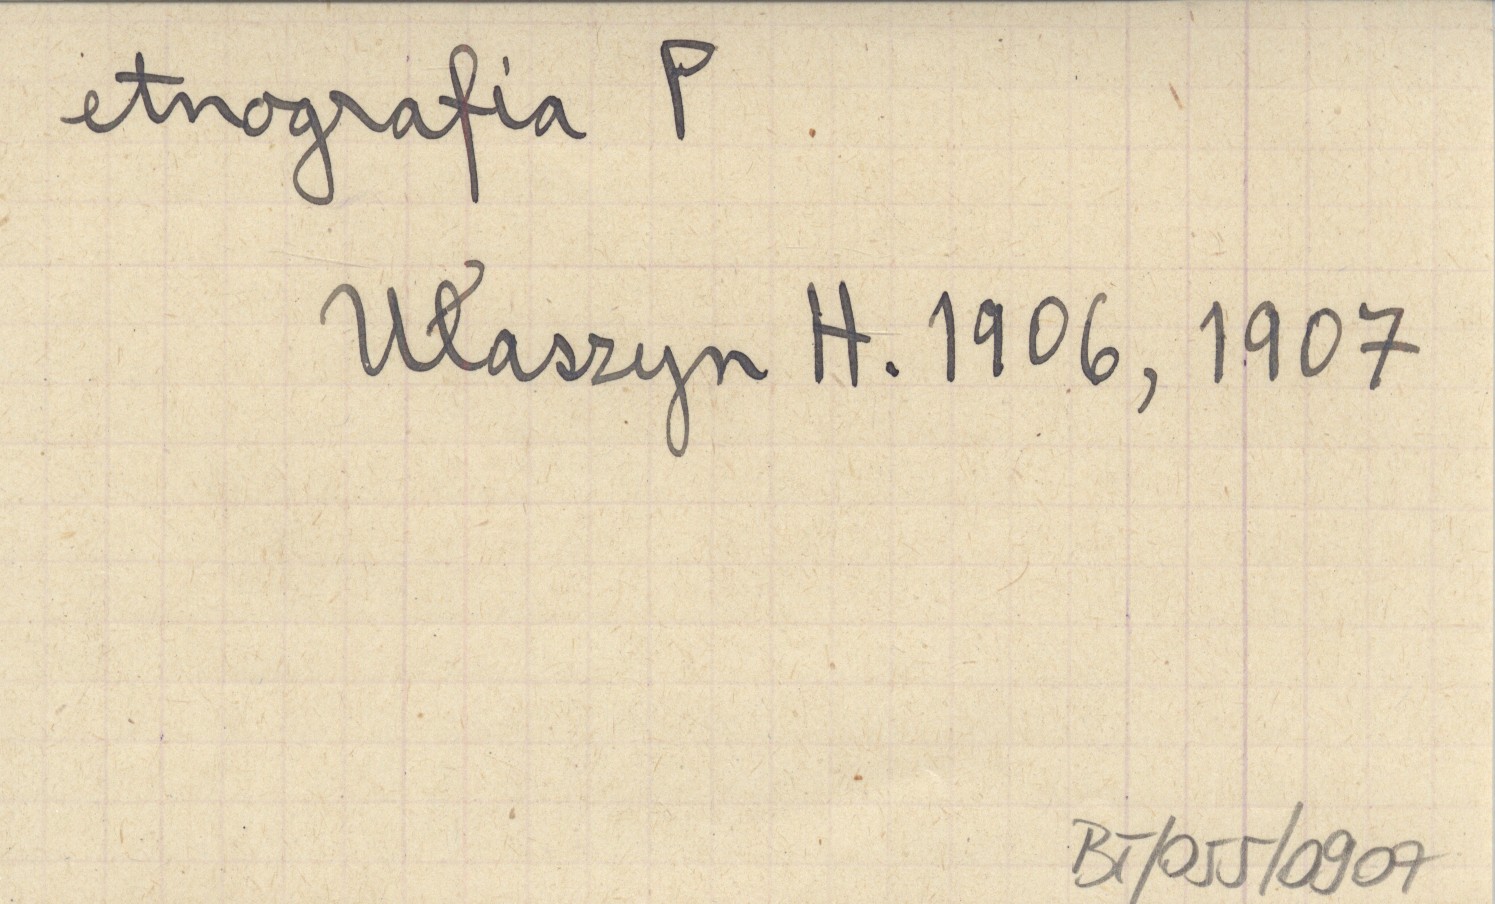 etnografia P
Ułaszyn H. 1906, 1907
BI/055/0907